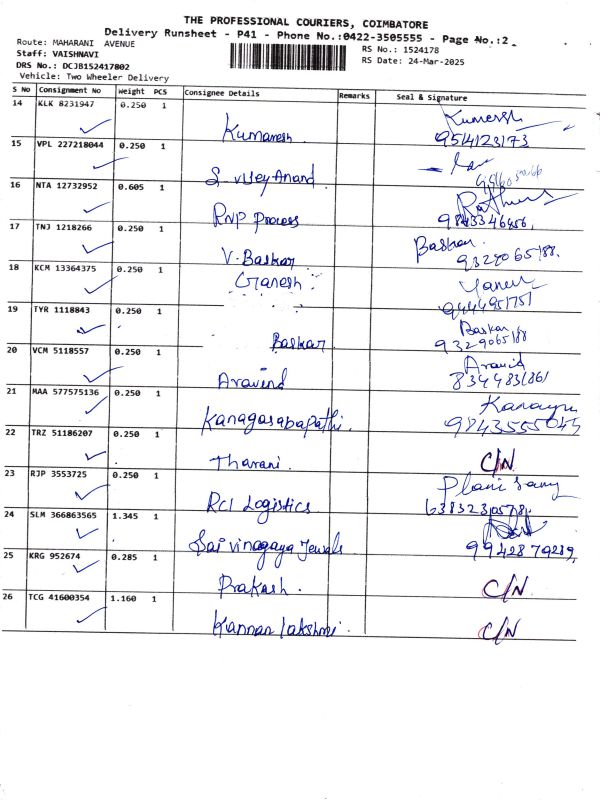 THE PROFESSIONAL COURIERS, COIMBATORE
Delivery Runsheet - P41 - Phone No.:0422-3505555 - Page No.:2
Route: MAHARANI AVENUE
Staff: VAISHNAVI
DRS No.: DCJB152417802
Vehicle: Two Wheeler Delivery
RS No.: 1524178
RS Date: 24-Mar-2025
S No Consignment No Weight PCS Consignee Details Remarks Seal & Signature
14 KLK 8231947 0.250 1 Kumaresh Kumaresh
954123173
15 VPL 227218044 0.250 1 S vijey Anand
16 NTA 12732952 0.605 1 RNP Process
9843346456
17 TNJ 1218266 0.250 1 V. Baskar Baskar.
9329065188.
18 KCM 13364375 0.250 1 Ganesh
9444951751
19 TYR 1118843 0.250 1 Baskar Baskar
9329065188
20 VCM 5118557 0.250 1 Aravind Aravind
8344831861
21 MAA 577575136 0.250 1 Kanagasabapathi.
9843555045
22 TRZ 51186207 0.250 1 Tharani. C/N
23 RJP 3553725 0.250 1 RCI Logistics Plani Samy
6383230578
24 SLM 366863565 1.345 1 Sai vinagaya Jewals
9942879289
25 KRG 952674 0.285 1 Prakash. C/N
26 TCG 41600354 1.160 1 Kannan lakshmi. C/N